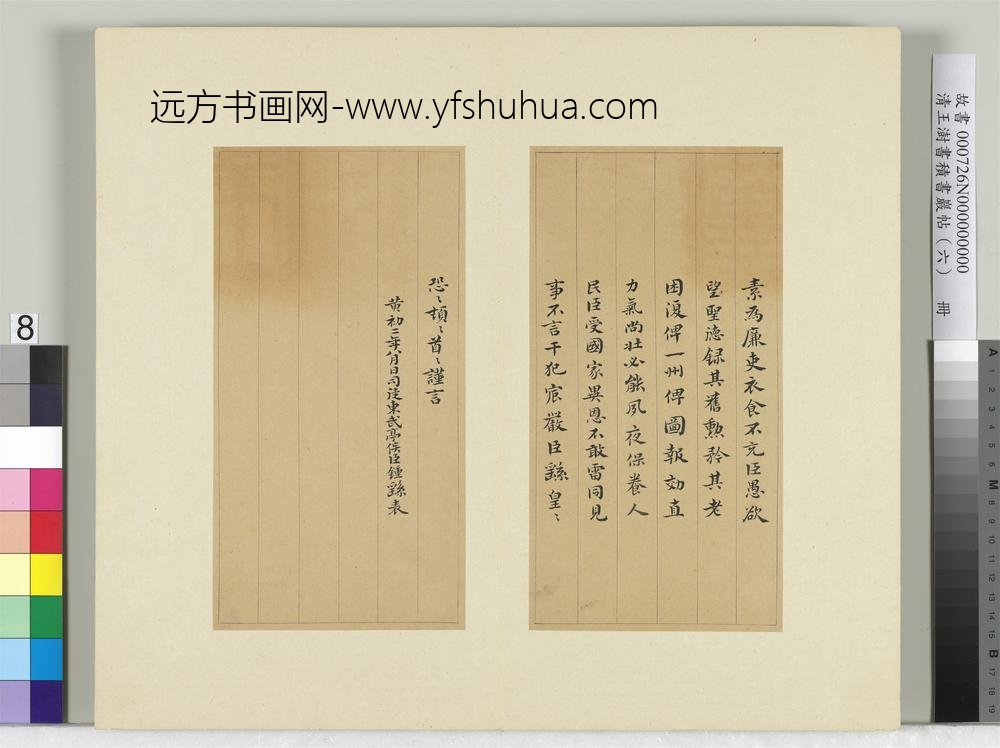 远方书画网-www.yfshuhua.com
故書 000726N000000000
清王澍書積書巖帖（六） 冊
8
素為廉吏衣食不充臣愚欲
望聖德録其舊勲矜其老
困復俾一州俾圖報効直
力氣尚壯必能夙夜保養人
民臣受國家異恩不敢雷同見
事不言干犯宸嚴臣繇皇〻
恐〻頓〻首〻謹言
黄初二年八月日司徒東武亭侯臣鍾繇表
A 1 2 3 4 5 6 M 8 9 10 11 12 13 14 15 B 17 18 19